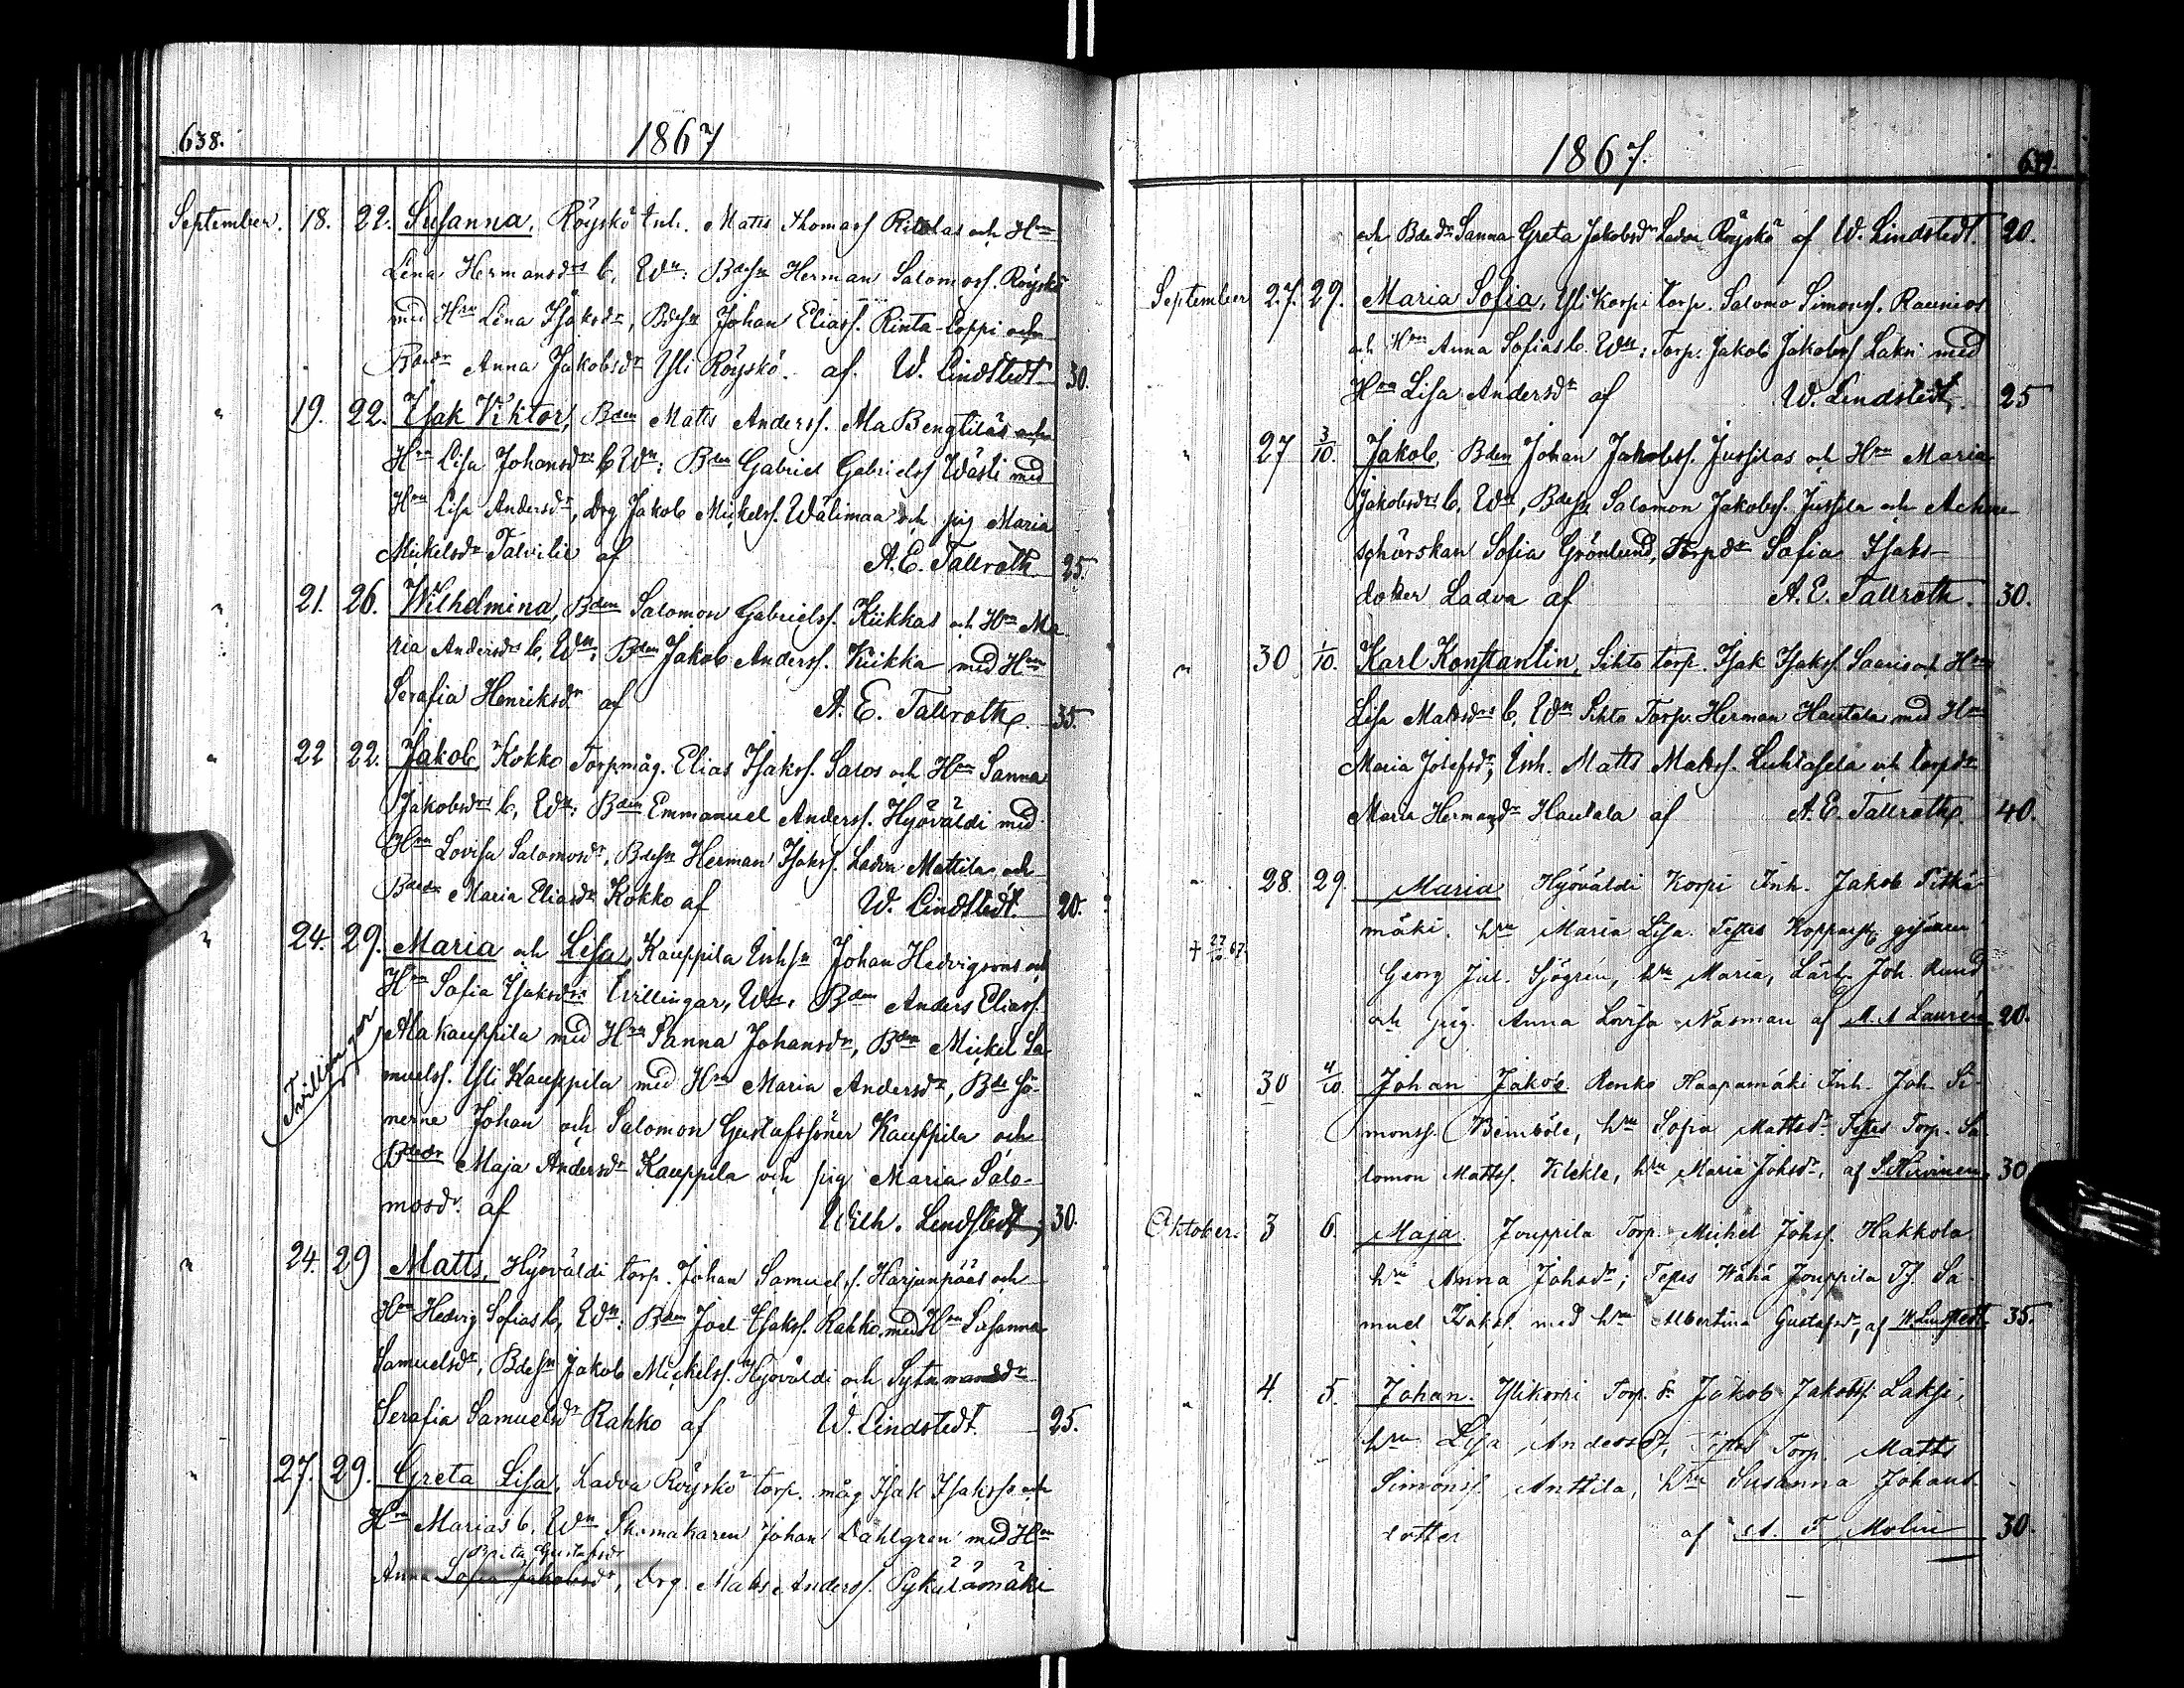 638. 1867
September. 18. 22. Susanna, Röyskö Inh. Matts Thomass Ritolas och Hru
Lena Hermansdrs b, Wn: Bdesn Herman Salomoss. Röyskö
med Hru Lena Isaksdr, Bdesn Johan Eliass. Rinta-Loppi och
Bdedr Anna Jakobsdr Yli Röyskö. af. W. Lindstedt 30.
" 19. 22. Isak Viktor, Bden Matts Anderss. Ala Bengtilas och
Hru Lisa Johansdrs b, Wn: Bden Gabriel Gabrielss Wästi med
Hru Lisa Andersdr, Drg Jakob Mickelss. Wälimaa och pig Maria
Mickelsdr Talvitie af A. E. Tallroth 25.
" 21. 26. Wilhelmina, Bden Salomon Gabrielss. Kiikkas och Hru Ma-
ria Andersdrs b, Wn: Bden Jakob Anderss. Kiikka med Hru
Serafia Henriksdr af A. E. Tallroth 35.
" 22 22. Jakob, Kokko Torpmåg. Elias Isakss. Salos och Hru Sanna
Jakobsdrs b, Wn: Bden Emmanuel Anderss. Hyöväldi med
Hru Lovisa Salomosdr, Bdesn Herman Isakss. Ladva Mattila och
Bdedr Maria Eliasdr Kokko af W. Lindstedt. 20.
" 24. 29. Maria och Lisa, Kauppila Inhsn Johan Hedvigsons och
Hru Sofia Isaksdrs tvillingar, Wn: Bden Anders Eliass.
Tvillingar
Alakauppila med Hru Sanna Johansdr, Bden Mickel Sa-
muelss. Yli Kauppila med Hru Maria Andersdr, Bde sö-
nerne Johan och Salomon Gustafssöner Kauppila och
Bdedr Maja Andersdr Kauppila och pig Maria Salo-
mosdr af Wilh. Lindstedt 30.
" 24. 29 Matts, Hyöväldi torp. Johan Samuelss. Harjunpääs och
Hru Hedvig Sofias b, Wn: Bden Joel Isakss. Rahko med Hru Susanna
Samuelsdr, Bdesn Jakob Mickelss. Hyöväldi och Sytnmansdr
Serafia Samuelsdr Rahko af W. Lindstedt. 25.
" 27. 29. Greta Lisa, Ladva Röyskö torp. måg Isak Isakss och
Hru Marias b, Wn Skomakaren Johan Dahlgren med Hru
Brita Gustafsdr
Anna Sofia Jakobsdr, Drg. Matts Anderss. Sykälämäki
1867. 639.
och Bdedr Sanna Greta Jakobsdr Ladva Röyskö af W. Lindstedt. 20.
September 27. 29. Maria Sofia, Yli Korpi torp. Salomo Simonss. Raunios
och Hru Anna Sofias b. Wn: Torp. Jakob Jakobss Laksi med
Hru Lisa Andersdr af W. Lindstedt. 25
" 27 3/10. Jakob, Bden Johan Jakobss. Jussilas och Hru Maria
Jakobsdrs b, Wn, Bdesn Salomon Jakobss. Jussila och Achou-
schörskan Sofia Grönlund, Torpdr Sofia Isaks-
dotter Ladva af A. E. Tallroth. 30.
" 30 1/10. Karl Konstantin, Sihto torp. Isak Isakss. Saaris och Hru
Lisa Mattsdrs b, Wn Sihto Torp. Herman Hautala med Hru
Maria Josefsdr, Inh. Matts Matss. Luhtasela och torpdr
Maria Hermansdr Hautala af A. E. Tallroth. 40.
" 28. 29. Maria Hyöväldi Korpi Inh. Jakob Pitkä-
mäki. hru Maria Lisa. Testes Kopparsl. gesällen
† 27/10 67.
Georg Jul. Sjögren, hru Maria, Lärl. Joh. Rund
och pig. Anna Lovisa Näsman af A. A Laurén 20.
" 30 4/10. Johan Jakob. Renko Haapamäki Inh. Joh. Si-
monss. Bemböle, hru Sofia Mattsdr. Testes Torp. Sa-
lomon Mattss. Klekle, hru Maria Johsdr. af S. Kivinen 30
Oktober. 3 6. Maja. Jouppila Torp. Michel Johss. Hakkola
hru Anna Johsdr; Testes Wähä Jouppila Tj. Sa-
muel Isaks. med hru Albertina Gustafsdr, af W Lindstedt. 35.
" 4. 5. Johan. Ylikorpi Torp. sn Jakob Jakobss. Laksi,
hru Lisa Andersdr, Testes Torp. Matts
Simonss. Anttila, hru Susanna Johans-
dotter af A. F Molin 30.